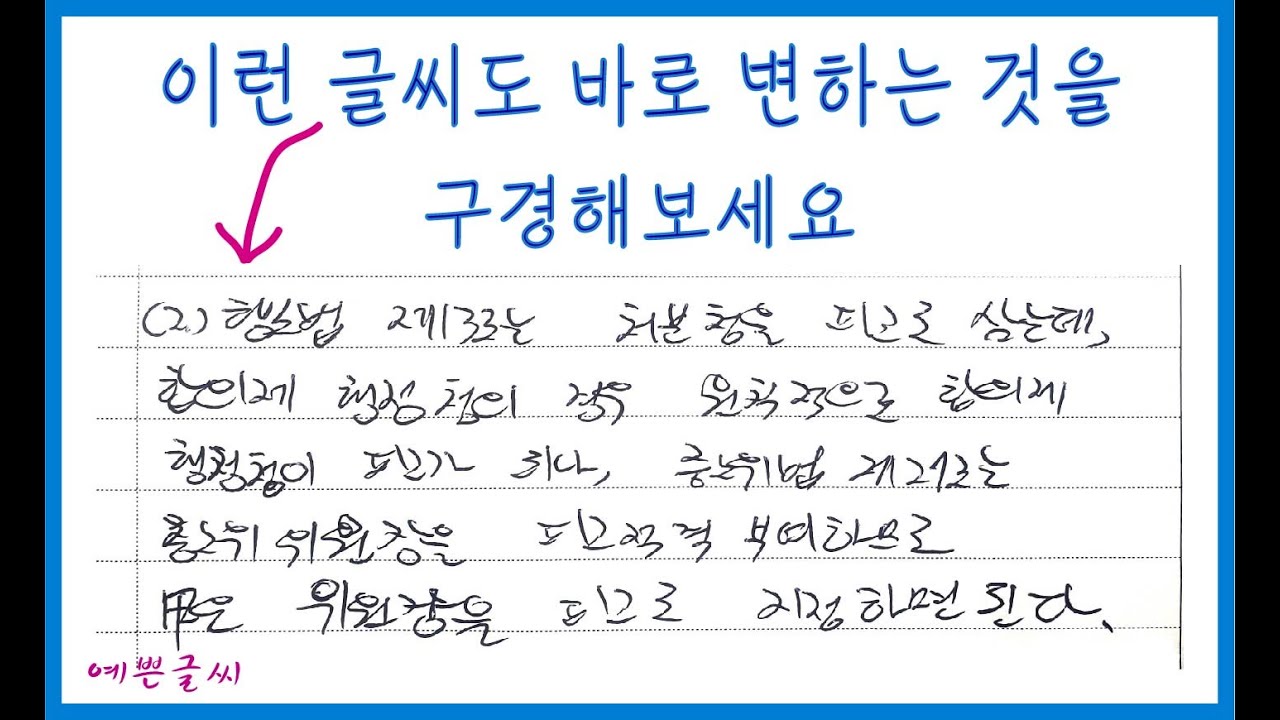 이런 글씨도 바로 변하는 것을
구경해보세요
(2) 행소법 제13조는 처분청을 피고로 삼는데,
합의제 행정청의 경우 원칙적으로 합의제
행정청이 피고가 되나, 중노위법 제27조는
중노위 위원장을 피고적격 부여하므로
甲은 위원장을 피고로 지정하면 된다.
예쁜글씨